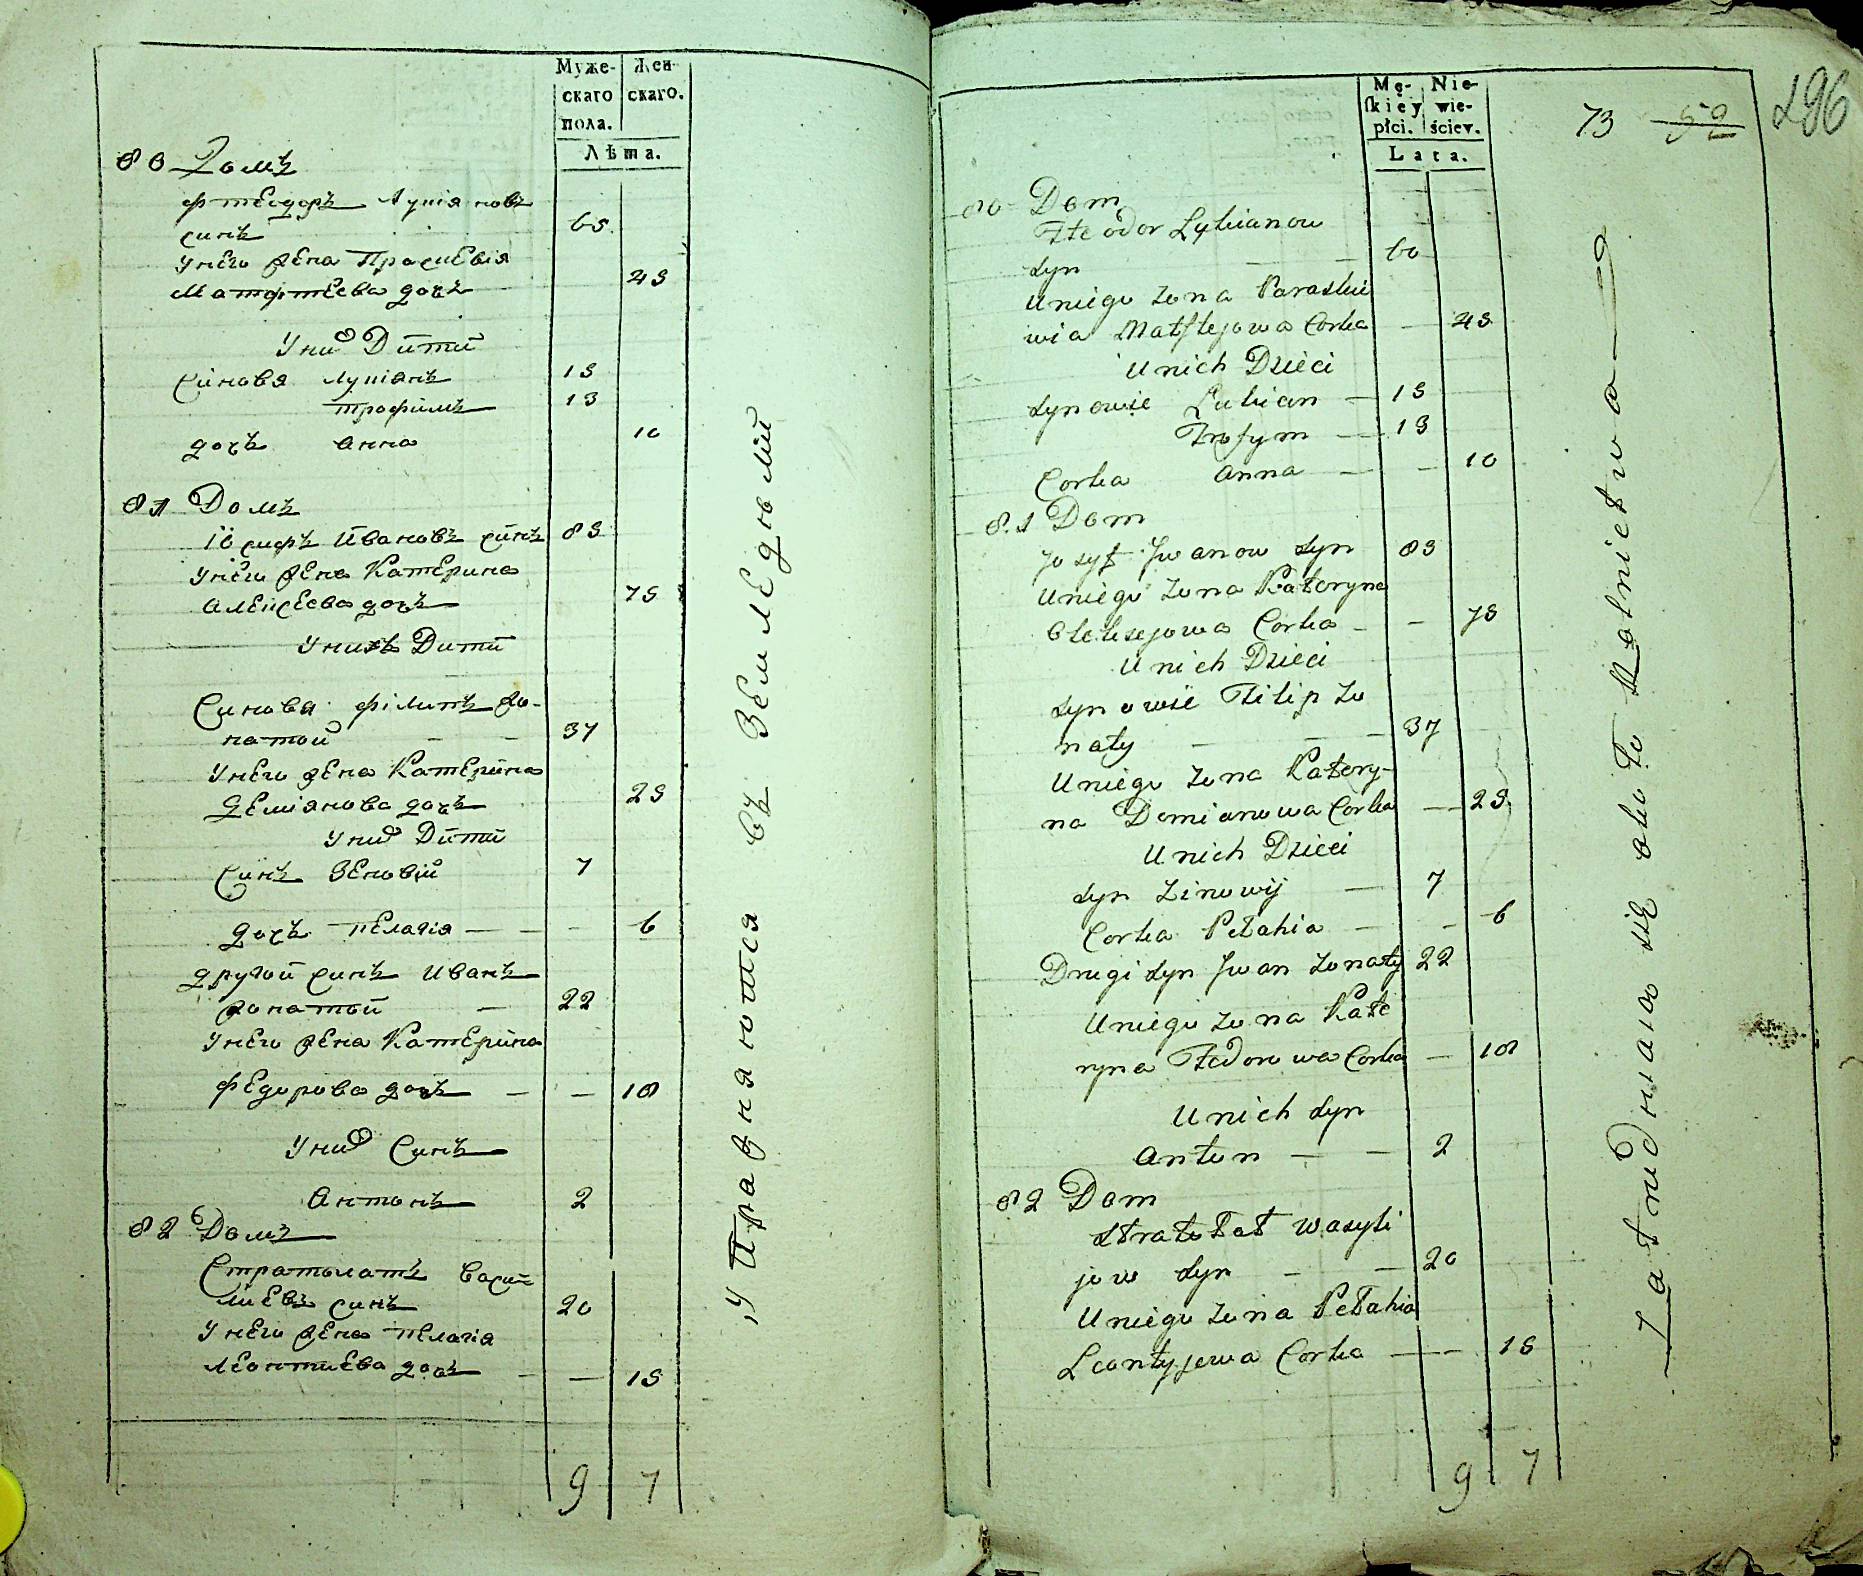 Муже-
скаго
пола.
Жен-
скаго.
Лѣта.
80 Домъ
Фтеодоръ Лукіяновъ
синъ 65
У него жена Праскевія
Матфтеева дочь 45
У них Дити
Синовя Лукіянъ 15
Трофимъ 13
дочь Анна 10
81 Домъ
Іосифъ Ивановъ синъ 85
У него жена Катерина
Алексеева дочь 75
У нихъ Дити
Синовя Філипъ жо-
натой — — 37
У него жена Катерина
Деміянова дочь 25
У них Дити
Синъ Зеновій 7
дочь Пелагія — — — 6
другой синъ Иванъ
жонатой — 22
У него жена Катерина
Федорова дочь — — 18
У них Синъ
Антонъ 2
82 Домъ
Стратолатъ Васи-
лиевъ синъ 20
У него жена Пелагія
Леонтиева дочь — — 15
9 7
Упражняются въ Земледѣлій
Mę-
skiéy
płci.
Nie-
wie-
ściey.
Lata.
73 50
296
80 Dom
Fteodor Lukianow
syn — — 60
U niego żona Paraskie
wia Matftejowa Corka — 45
U nich Dzieci
synowie Lukian — 15
Trofym — 13
Corka Anna — — 10
81 Dom
Josyf Jwanow syn 85
U niego żona Kateryna
Oleksejowa Corka — — 75
U nich Dzieci
synowie Filip żo
naty — — — 37
U niego żona Katery-
na Demianowa Corka — 25
U nich Dzieci
syn Zinowij — 7
Corka Pełahia — — 6
Drugi syn Jwan żonaty 22
U niego żona Kate
ryna Fedorowa Corka — 18
U nich syn
Anton — — 2
82 Dom
Stratołat Wasyli
jow syn — — 20
U niego żona Pełahia
Leontyjewa Corka — — 15
9 7
Zatrudniaią się około Rolnictwa